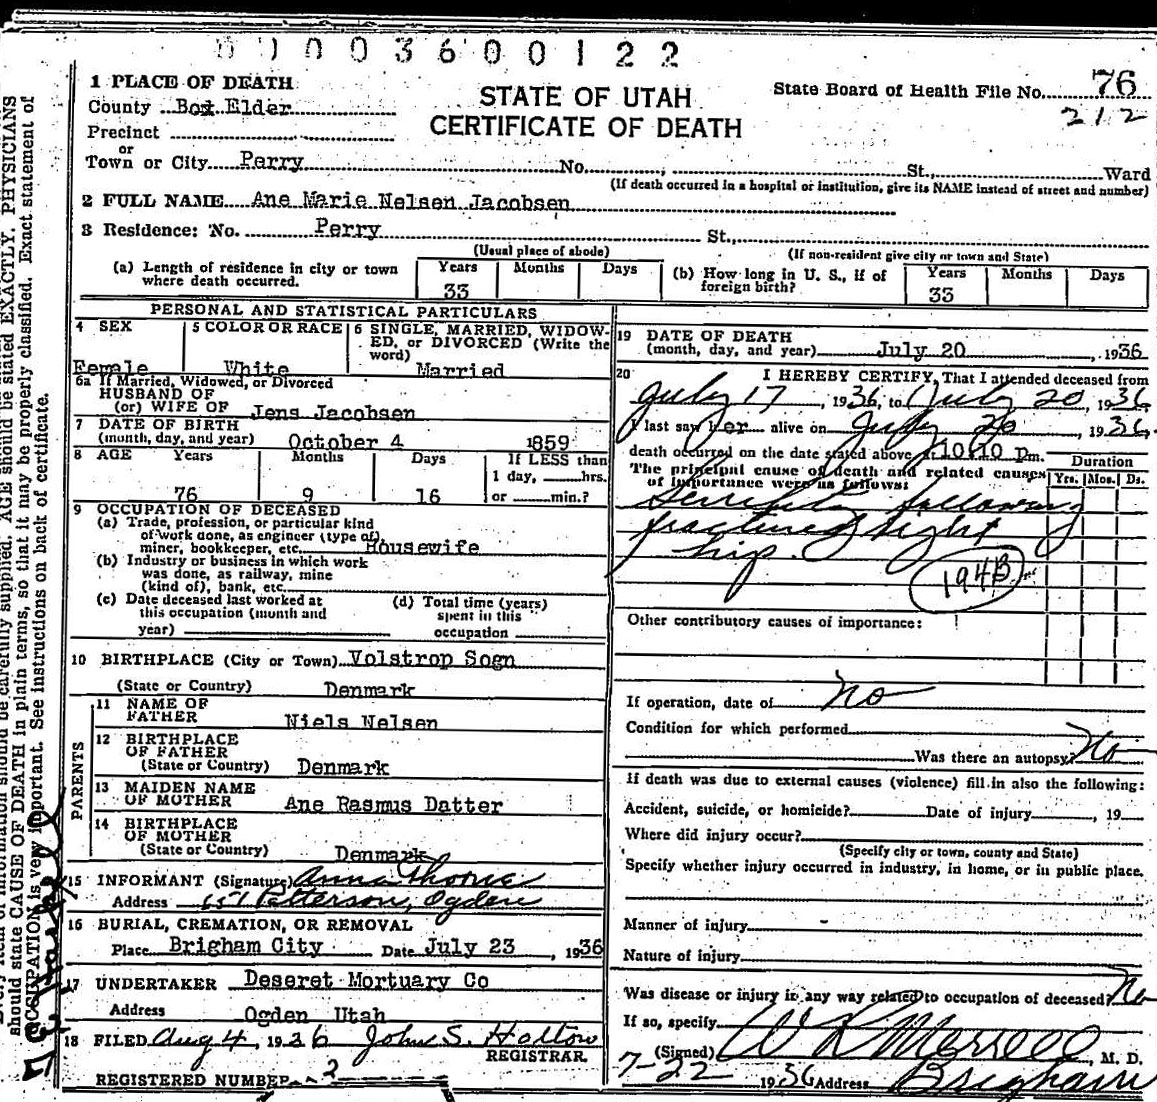 01003600122
1 PLACE OF DEATH
County Box Elder
Precinct
or
Town or City Perry No. St., Ward
(If death occurred in a hospital or institution, give its NAME instead of street and number)
STATE OF UTAH
CERTIFICATE OF DEATH
State Board of Health File No. 76
212
2 FULL NAME Ane Marie Nelsen Jacobsen
3 Residence: No. Perry St.,
(Usual place of abode) (If non-resident give city or town and State)
(a) Length of residence in city or town where death occurred. Years 33 Months Days
(b) How long in U. S., if of foreign birth? Years 33 Months Days
PERSONAL AND STATISTICAL PARTICULARS
4 SEX Female
5 COLOR OR RACE White
6 SINGLE, MARRIED, WIDOWED, or DIVORCED (Write the word) Married
6a If Married, Widowed, or Divorced
HUSBAND OF
(or) WIFE OF Jens Jacobsen
7 DATE OF BIRTH
(month, day, and year) October 4 1859
8 AGE Years 76 Months 9 Days 16 If LESS than 1 day, hrs. or min.?
9 OCCUPATION OF DECEASED
(a) Trade, profession, or particular kind
of work done, as engineer (type of),
miner, bookkeeper, etc. Housewife
(b) Industry or business in which work
was done, as railway, mine
(kind of), bank, etc.
(c) Date deceased last worked at
this occupation (month and
year)
(d) Total time (years)
spent in this
occupation
10 BIRTHPLACE (City or Town) Volstrop Sogn
(State or Country) Denmark
PARENTS
11 NAME OF
FATHER Niels Nelsen
12 BIRTHPLACE
OF FATHER
(State or Country) Denmark
13 MAIDEN NAME
OF MOTHER Ane Rasmus Datter
14 BIRTHPLACE
OF MOTHER
(State or Country) Denmark
15 INFORMANT (Signature) Anna Thorne
Address 651 Patterson, Ogden
16 BURIAL, CREMATION, OR REMOVAL
Place Brigham City Date July 23, 1936
17 UNDERTAKER Deseret Mortuary Co
Address Ogden Utah
18 FILED Aug 4, 1936 John S. Holtow
REGISTRAR
REGISTERED NUMBER 2
19 DATE OF DEATH
(month, day, and year) July 20, 1936
20 I HEREBY CERTIFY, That I attended deceased from
July 17, 1936, to July 20, 1936
I last saw her alive on July 20, 1936
death occurred on the date stated above at 10:10 Pm.
The principal cause of death and related causes
of importance were as follows:
Duration
Yrs. Mos. Ds.
Senility following
fractured right
hip.
194B
Other contributory causes of importance:
If operation, date of No
Condition for which performed
Was there an autopsy? No
If death was due to external causes (violence) fill in also the following:
Accident, suicide, or homicide? Date of injury, 19
Where did injury occur?
(Specify city or town, county and State)
Specify whether injury occurred in industry, in home, or in public place.
Manner of injury
Nature of injury
Was disease or injury in any way related to occupation of deceased? No
If so, specify
(Signed) W L Merrell, M. D.
7-22 1936 Address Brigham
should be carefully supplied. AGE should be stated EXACTLY. PHYSICIANS
should state CAUSE OF DEATH in plain terms, so that it may be properly classified. Exact statement of
OCCUPATION is very important. See instructions on back of certificate.